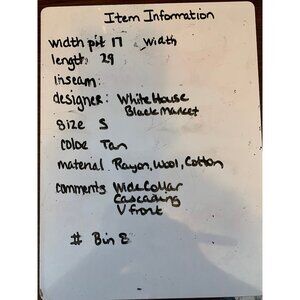 Item Information
width pit 17 width
length: 29
inseam:
designer: White House
Black Market
Size S
Color Tan
material Rayon, Wool, Cotton
comments Wide Collar
Cascading
V front
# Bin 8